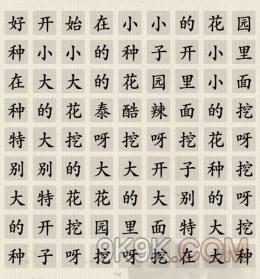 好开始在小小的花园
种小小的种子开小里
在大大的花园里小面
种的花泰酷辣面的挖
特大挖呀挖呀挖花挖
别别的大大开子挖呀
大特花花的大别的呀
的开挖园里面特大挖
种子呀挖呀挖在大种
9K9K.COM